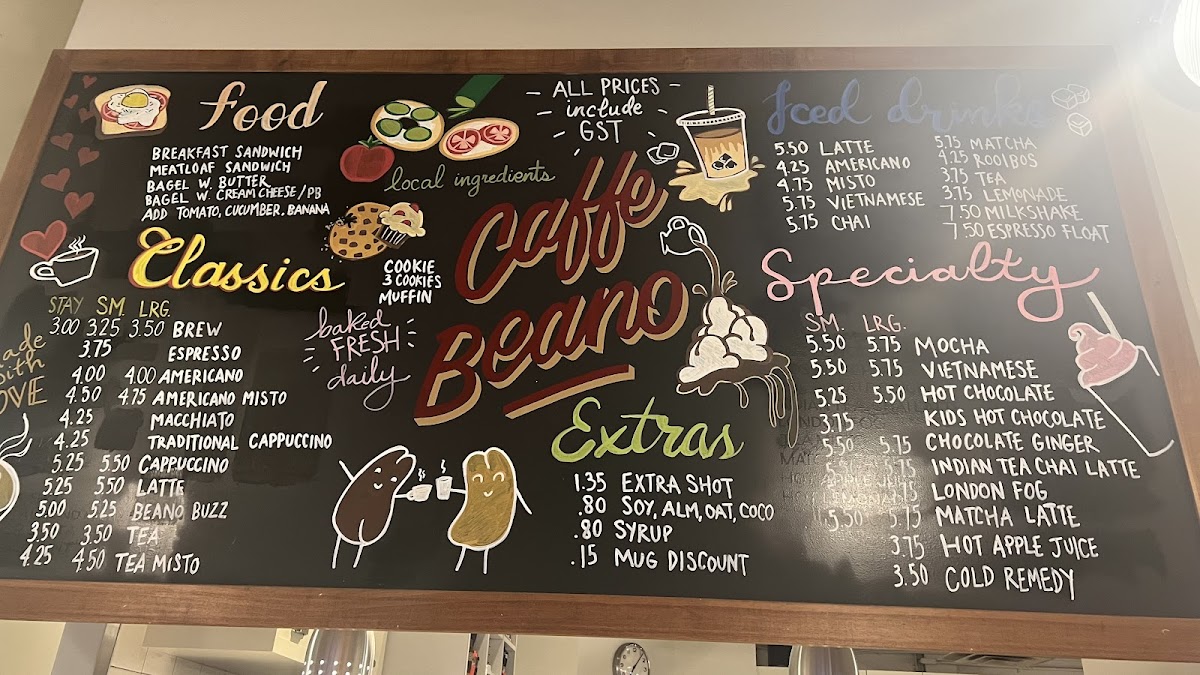 Food
BREAKFAST SANDWICH
MEATLOAF SANDWICH
BAGEL W. BUTTER
BAGEL W. CREAM CHEESE/PB
ADD TOMATO, CUCUMBER, BANANA
local ingredients
- ALL PRICES -
include
GST
Caffe
Beano
Classics
STAY SM. LRG.
3.00 3.25 3.50 BREW
3.75 ESPRESSO
4.00 4.00 AMERICANO
4.50 4.75 AMERICANO MISTO
4.25 MACCHIATO
4.25 TRADITIONAL CAPPUCCINO
5.25 5.50 CAPPUCCINO
5.25 5.50 LATTE
5.00 5.25 BEANO BUZZ
3.50 3.50 TEA
4.25 4.50 TEA MISTO
COOKIE
3 COOKIES
MUFFIN
baked
FRESH
daily
Extras
1.35 EXTRA SHOT
.80 SOY, ALM, OAT, COCO
.80 SYRUP
.15 MUG DISCOUNT
Iced drinks
5.50 LATTE
4.25 AMERICANO
4.75 MISTO
5.75 VIETNAMESE
5.75 CHAI
5.75 MATCHA
4.25 ROOIBOS
3.75 TEA
3.75 LEMONADE
7.50 MILKSHAKE
7.50 ESPRESSO FLOAT
Specialty
SM. LRG.
5.50 5.75 MOCHA
5.50 5.75 VIETNAMESE
5.25 5.50 HOT CHOCOLATE
3.75 KIDS HOT CHOCOLATE
5.50 5.75 CHOCOLATE GINGER
5.75 INDIAN TEA CHAI LATTE
LONDON FOG
5.50 5.75 MATCHA LATTE
3.75 HOT APPLE JUICE
3.50 COLD REMEDY